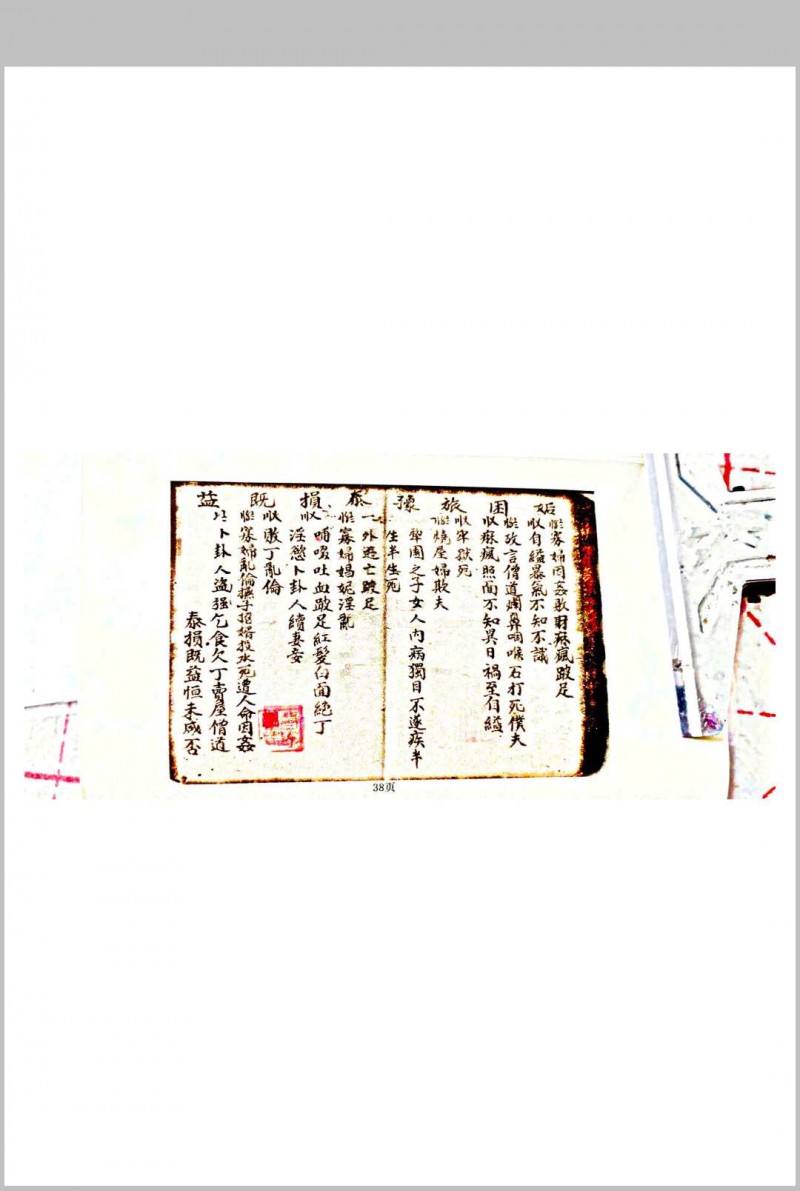 姤
寡婦因姦敗財麻瘋跛足
收自縊暴氣不知不識
困
故言僧道爛鼻咽喉石打死僕夫
收麻瘋照面不知異日禍至自縊
旅
收牢獄死
燒屋婦欺夫
豫
犂園之子女人內病獨目不遂疾半
生半死
泰
外逃亡跛足
寡婦娼妮淫亂
損
收哺啜吐血跛足紅髮白面絕丁
淫慾卜卦人續妻妾
既
收敗丁亂倫
寡婦亂倫撫子招婿投水死遭人命因姦
益
卜卦人盜強乞食欠丁賣屋僧道
泰損既益恒未咸否
38頁